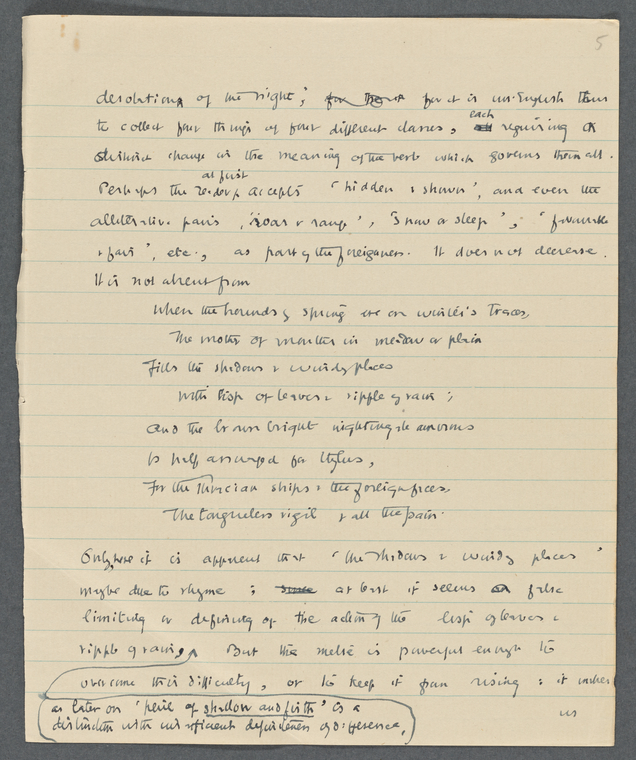 5
desolations of the night; for it is un-English thus
to collect four things of four different classes, each requiring a
distinct change in the meaning of the verb which governs them all.
Perhaps the reader at first accepts 'hidden & shown', and even the
alliterative pairs, 'roar & range', 'snow or sleep', 'favourable
& fair', etc., as part of the foreignness. It does not decrease.
It is not absent from
When the hounds of spring are on winter's traces,
The mother of months in meadow or plain
Fills the shadows & windy places
With lisp of leaves & ripple of rain;
And the brown bright nightingale amorous
Is half assuaged for Itylus,
For the Thracian ships & the foreign faces,
The tongueless vigil & all the pain.
Only here it is apparent that 'the shadows & windy places'
may be due to rhyme; at least it seems a false
limiting or defining of the action of the lisp of leaves &
ripple of rain, But the metre is powerful enough to
overcome this difficulty, or to keep it from rising: it makes
us
as later on 'peril of shallow and firth' is a
distinction with insufficient definiteness of difference,